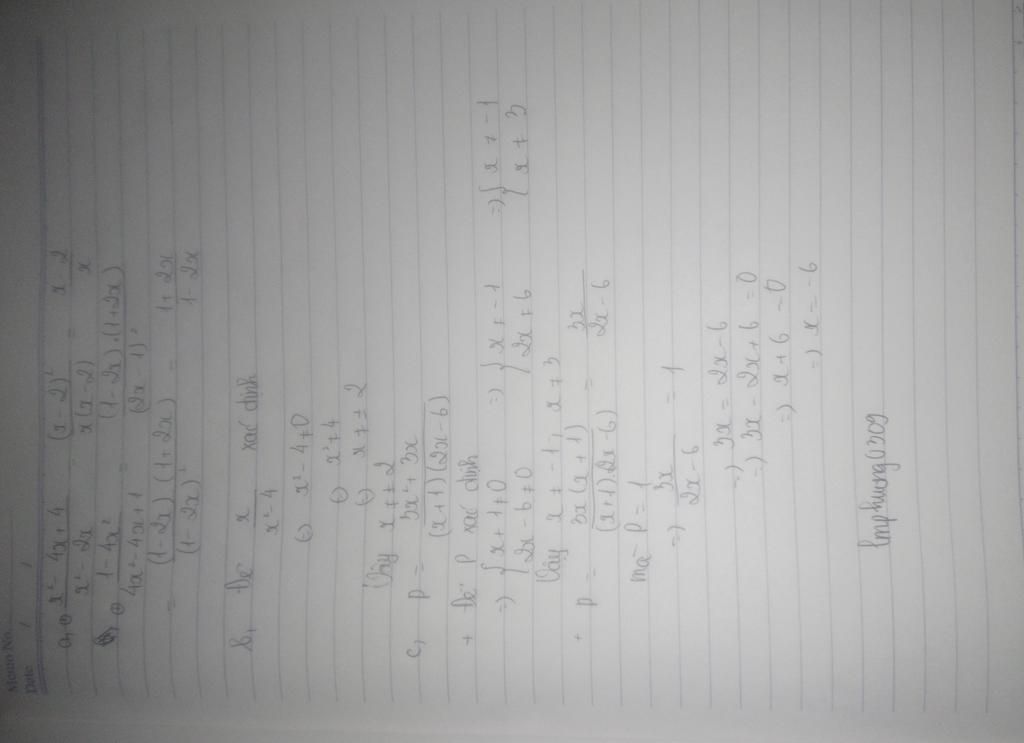 Memo No.
Date / /
a, ⊕ x² - 4x + 4 / x² - 2x = (x - 2)² / x(x - 2) = x - 2 / x
⊕ 1 - 4x² / 4x² - 4x + 1 = (1 - 2x).(1 + 2x) / (2x - 1)²
= (1 - 2x)(1 + 2x) / (1 - 2x)² = 1 + 2x / 1 - 2x
b, Để x / x² - 4 xác định
⇔ x² - 4 ≠ 0
⇔ x² ≠ 4
⇔ x ≠ ± 2
Vậy x ≠ ± 2
c, P = 3x² + 3x / (x + 1)(2x - 6)
+ Để P xác định
=> { x + 1 ≠ 0 ; 2x - 6 ≠ 0 => { x ≠ -1 ; 2x ≠ 6 => { x ≠ -1 ; x ≠ 3
Vậy x ≠ -1, x ≠ 3
+ P = 3x(x + 1) / (x + 1).2x - 6) = 3x / 2x - 6
mà P = 1
=> 3x / 2x - 6 = 1
=> 3x = 2x - 6
=> 3x - 2x + 6 = 0
=> x + 6 = 0
=> x = -6
lmphuong01309